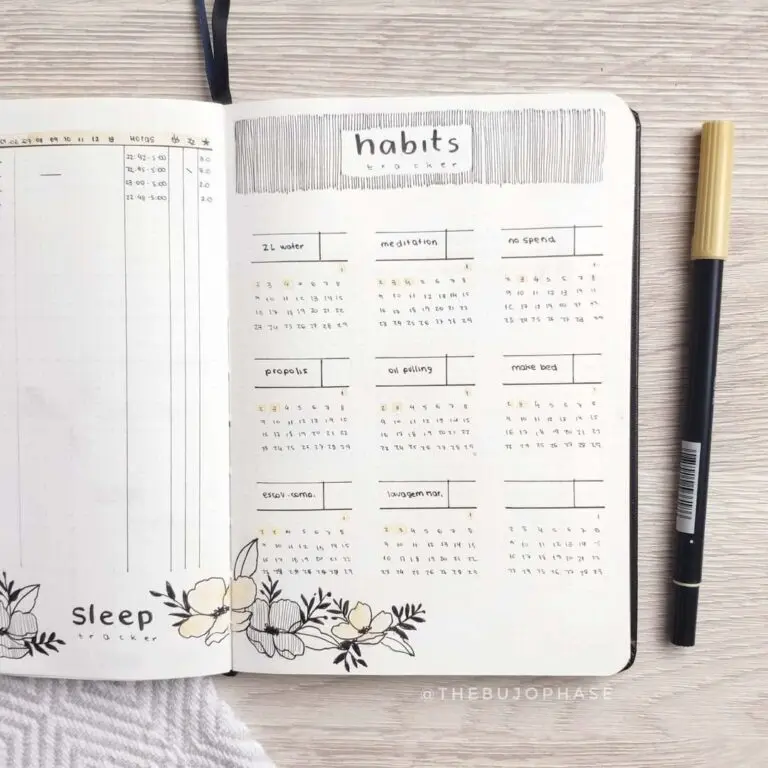 07 08 09 10 11 12 HORAS
22:45-5:00
23:00-5:00
22:45-5:00
sleep
tracker
habits
tracker
2L water meditation no spend
1 1 1
2 3 4 5 6 7 8 2 3 4 5 6 7 8 2 3 4 5 6 7 8
9 10 11 12 13 14 15 9 10 11 12 13 14 15 9 10 11 12 13 14
16 17 18 19 20 21 22 16 17 18 19 20 21 22 17 18 19 20 21 22
23 24 25 26 27 28 29 23 24 25 26 27 28 29 23 24 25 26 27 28 29
propolis oil pulling make bed
1 1 1
2 3 4 5 6 7 8 2 3 4 5 6 7 8 2 3 4 5 6 7 8
9 10 11 12 13 14 15 9 10 11 12 13 14 15 9 10 11 12 13 14 15
16 17 18 19 20 21 22 16 17 18 19 20 21 22 16 17 18 19 20 21 22
23 24 25 26 27 28 29 23 24 25 26 27 28 29 23 24 25 26 27 28 29
lavagem nar.
1 1 1
2 3 4 5 6 7 8 2 3 4 5 6 7 8 2 3 4 5 6 7 8
9 10 11 12 13 14 15 9 10 11 12 13 14 15 9 10 11 12 13 14
16 17 18 19 20 21 22 17 18 19 20 21 22 16 17 18 19 20 21 22
26 27 28 29 23 24 25 26 27 28 29 23 24 25 26 27 28 29
@THEBUJOPHASE